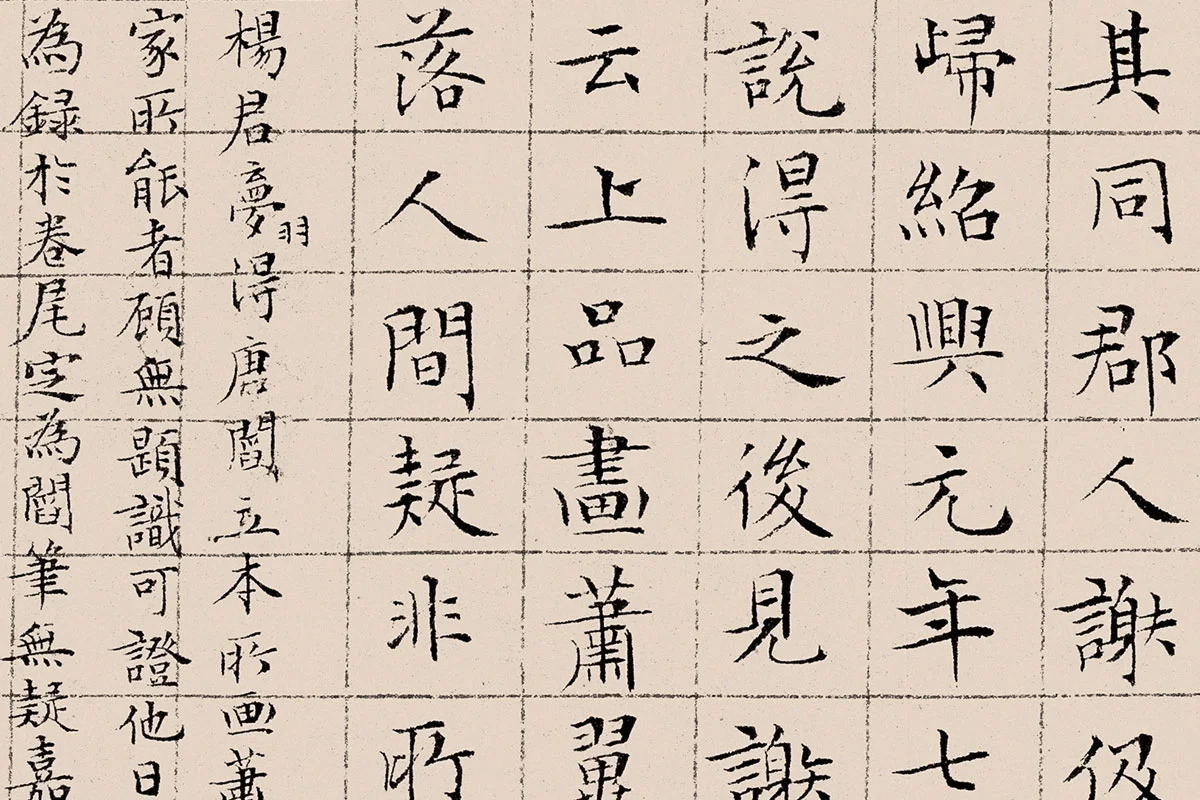 其同郡人謝伋
歸紹興元年七
說得之後見謝
云上品畫蕭翼
落人間疑非所
楊君夢羽得唐閻立本所画蕭
家所能者顧無題識可證他日
為錄於卷尾定為閻筆無疑嘉